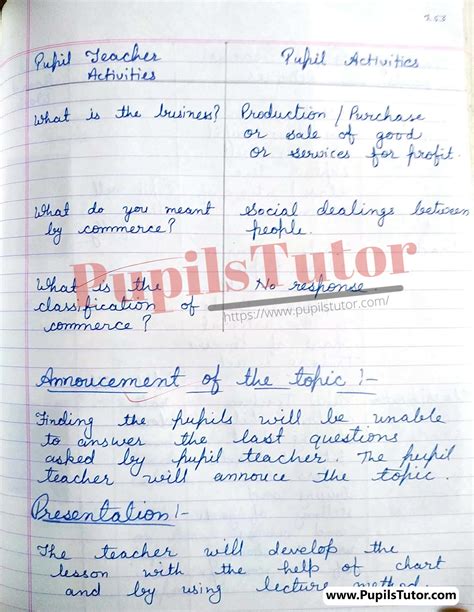 Pupil Teacher Activities | Pupil Activities
What is the business? | Production / Purchase
or sale of good
or services for profit.
What do you meant | Social dealings between
by commerce? | people.
PupilsTutor
What is the | No response
https://www.pupilstutor.com/
classification of
commerce ?
Annoucement of the topic :-
Finding the pupils will be unable
to answer the last questions
asked by pupil teacher. The pupil
teacher will annouce the topic.
Presentation :-
The teacher will develop the
lesson with the help of chart
and by using lecture method.
www.PupilsTutor.com